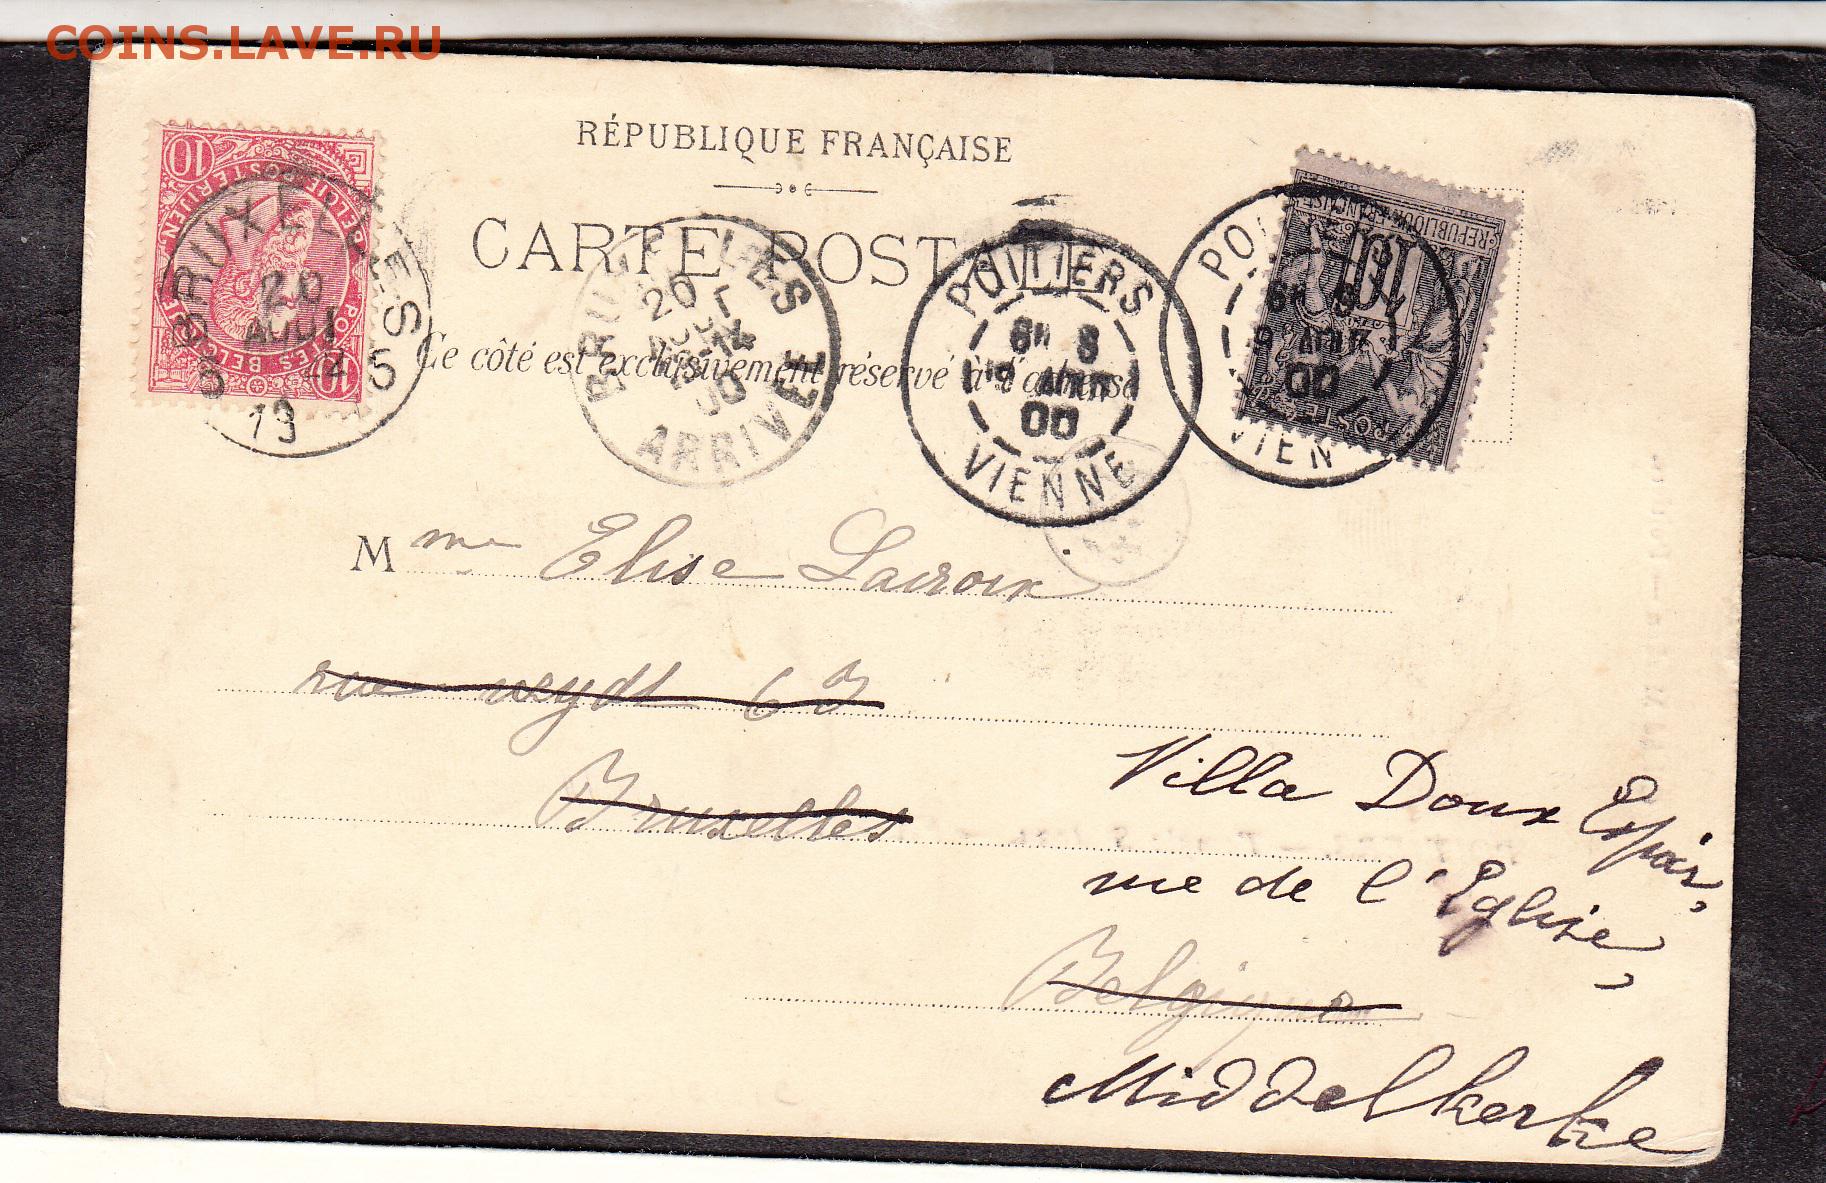 COINS.LAVE.RU
RÉPUBLIQUE FRANÇAISE
CARTE POSTALE
Ce côté est exclusivement réservé à l'adresse
10
BRUXELLES
20
AOUT
5
19
BRUXELLES
20
AOUT
00
ARRIVEE
POITIERS
00
VIENNE
POI
00
VIEN
RÉPUBLIQUE FRANÇAISE
10
POSTE
Mme Elise Lacroix
rue Veydt 63
Bruxelles
Villa Doux Espoir,
rue de l'Eglise,
Belgique
Middelkerke